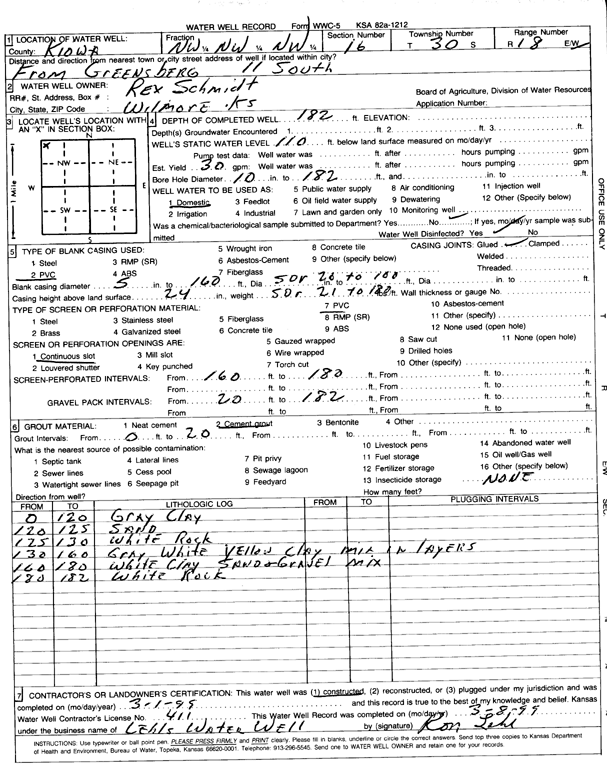 WATER WELL RECORD Form WWC-5 KSA 82a-1212
1 LOCATION OF WATER WELL: Fraction Section Number Township Number Range Number
County: KIOWA NW ¼ NW ¼ NW ¼ 16 T 30 S R 18 E/W
Distance and direction from nearest town or city street address of well if located within city?
From Greensberg 11 South
2 WATER WELL OWNER: Rex Schmidt
RR#, St. Address, Box # : Board of Agriculture, Division of Water Resources
City, State, ZIP Code : Wilmore KS Application Number:
3 LOCATE WELL'S LOCATION WITH AN "X" IN SECTION BOX:
N
NW NE
W E
SW SE
S
1 Mile
4 DEPTH OF COMPLETED WELL 182 ft. ELEVATION:
Depth(s) Groundwater Encountered 1. ft. 2. ft. 3. ft.
WELL'S STATIC WATER LEVEL 110 ft. below land surface measured on mo/day/yr
Pump test data: Well water was ft. after hours pumping gpm
Est. Yield 30 gpm: Well water was ft. after hours pumping gpm
Bore Hole Diameter 10 in. to 182 ft., and in. to ft.
WELL WATER TO BE USED AS: 5 Public water supply 8 Air conditioning 11 Injection well
1 Domestic 3 Feedlot 6 Oil field water supply 9 Dewatering 12 Other (Specify below)
2 Irrigation 4 Industrial 7 Lawn and garden only 10 Monitoring well
Was a chemical/bacteriological sample submitted to Department? Yes No ✓; If yes, mo/day/yr sample was sub-
mitted Water Well Disinfected? Yes ✓ No
5 TYPE OF BLANK CASING USED: 5 Wrought iron 8 Concrete tile CASING JOINTS: Glued ✓ Clamped
1 Steel 3 RMP (SR) 6 Asbestos-Cement 9 Other (specify below) Welded
2 PVC 4 ABS 7 Fiberglass Threaded
Blank casing diameter 5 in. to 160 ft., Dia SDr 26 to 100 ft., Dia in. to ft.
Casing height above land surface 24 in., weight SDr 21 to 180 lbs./ft. Wall thickness or gauge No.
TYPE OF SCREEN OR PERFORATION MATERIAL: 7 PVC 10 Asbestos-cement
1 Steel 3 Stainless steel 5 Fiberglass 8 RMP (SR) 11 Other (specify)
2 Brass 4 Galvanized steel 6 Concrete tile 9 ABS 12 None used (open hole)
SCREEN OR PERFORATION OPENINGS ARE: 5 Gauzed wrapped 8 Saw cut 11 None (open hole)
1 Continuous slot 3 Mill slot 6 Wire wrapped 9 Drilled holes
2 Louvered shutter 4 Key punched 7 Torch cut 10 Other (specify)
SCREEN-PERFORATED INTERVALS: From 160 ft. to 180 ft., From ft. to ft.
From ft. to ft., From ft. to ft.
GRAVEL PACK INTERVALS: From 20 ft. to 182 ft., From ft. to ft.
From ft. to ft., From ft. to ft.
6 GROUT MATERIAL: 1 Neat cement 2 Cement grout 3 Bentonite 4 Other
Grout Intervals: From 0 ft. to 20 ft., From ft. to ft., From ft. to ft.
What is the nearest source of possible contamination: 10 Livestock pens 14 Abandoned water well
1 Septic tank 4 Lateral lines 7 Pit privy 11 Fuel storage 15 Oil well/Gas well
2 Sewer lines 5 Cess pool 8 Sewage lagoon 12 Fertilizer storage 16 Other (specify below)
3 Watertight sewer lines 6 Seepage pit 9 Feedyard 13 Insecticide storage NONE
Direction from well? How many feet?
FROM TO LITHOLOGIC LOG FROM TO PLUGGING INTERVALS
0 120 Gray Clay
120 125 SAND
125 130 White Rock
130 160 Gray White Yellow Clay mix in layers
160 180 White Clay Sand & Gravel mix
180 182 White Rock
7 CONTRACTOR'S OR LANDOWNER'S CERTIFICATION: This water well was (1) constructed, (2) reconstructed, or (3) plugged under my jurisdiction and was
completed on (mo/day/year) 3-1-99 and this record is true to the best of my knowledge and belief. Kansas
Water Well Contractor's License No. 411 This Water Well Record was completed on (mo/day/yr) 3-8-99
under the business name of Lehls Water Well by (signature) Ron Lehl
INSTRUCTIONS: Use typewriter or ball point pen. PLEASE PRESS FIRMLY and PRINT clearly. Please fill in blanks, underline or circle the correct answers. Send top three copies to Kansas Department
of Health and Environment, Bureau of Water, Topeka, Kansas 66620-0001. Telephone: 913-296-5545. Send one to WATER WELL OWNER and retain one for your records.
OFFICE USE ONLY
T
R
E/W
SEC